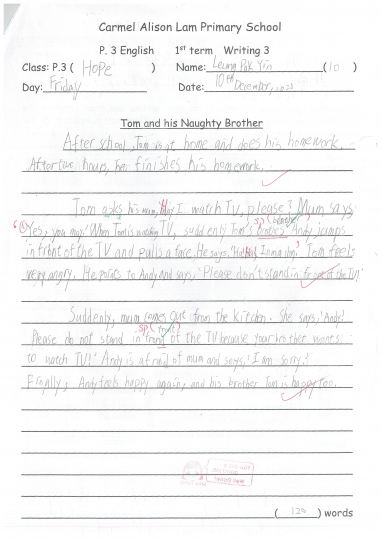 Carmel Alison Lam Primary School
P. 3 English 1st term Writing 3
Class: P.3 ( Hope ) Name: Leung Pak Yin (10)
Day: Friday Date: 10th December, 2021
Tom and his Naughty Brother
After school, Tom is at home and does his homework.
After two hours, Tom finishes his homework.
Tom asks his mum, 'May I watch TV, please?' Mum says
'Yes, you may.' When Tom is watching TV, suddenly Tom's Andy jumps
in front of the TV and pulls a face. He says, 'Ha! Ha! Tom feels
very angry. He points to Andy and says, 'Please don't stand in front of the TV!'
Suddenly, mum comes out from the kitchen. She says, 'Andy!
sp (front)
Please do not stand in of the TV because your brother wants
to watch TV!' Andy is afraid of mum and says, 'I am sorry.'
Finally, Andy feels happy again, and his brother Tom is happy too.
( 120 ) words